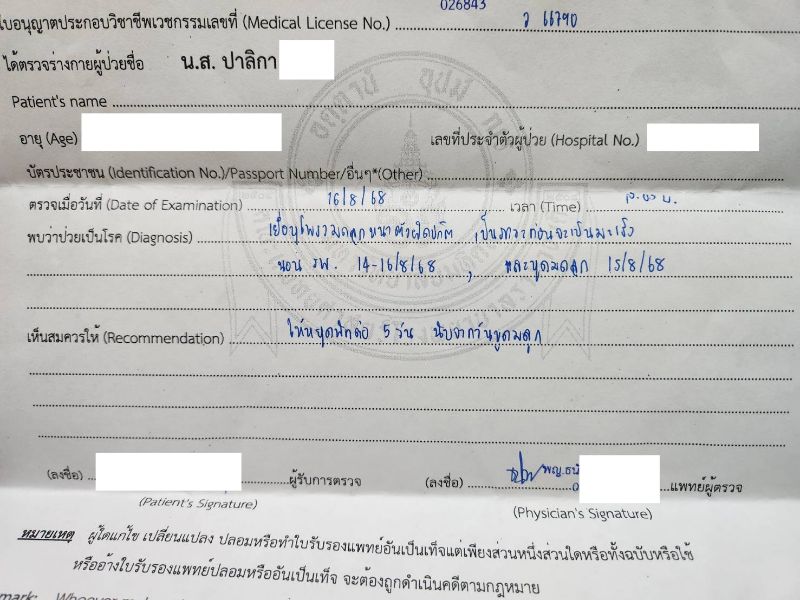 ใบอนุญาตประกอบวิชาชีพเวชกรรมเลขที่ (Medical License No.) 026843 ว 66790
ได้ตรวจร่างกายผู้ป่วยชื่อ น.ส. ปาลิกา
Patient's name
อายุ (Age) เลขที่ประจำตัวผู้ป่วย (Hospital No.)
บัตรประชาชน (Identification No.)/Passport Number/อื่นๆ*(Other)
ตรวจเมื่อวันที่ (Date of Examination) 16/8/68 เวลา (Time) น.
พบว่าป่วยเป็นโรค (Diagnosis) เยื่อบุโพรงมดลูกหนาตัวผิดปกติ เป็นภาวะก่อนจะเป็นมะเร็ง
นอน รพ. 14-16/8/68 , และขูดมดลูก 15/8/68
เห็นสมควรให้ (Recommendation) ให้หยุดพักต่อ 5 วัน นับจากวันขูดมดลูก
(ลงชื่อ) ผู้รับการตรวจ (ลงชื่อ) พญ.ธนั แพทย์ผู้ตรวจ
(Patient's Signature) (Physician's Signature)
หมายเหตุ ผู้ใดแก้ไข เปลี่ยนแปลง ปลอมหรือทำใบรับรองแพทย์อันเป็นเท็จแต่เพียงส่วนหนึ่งส่วนใดหรือทั้งฉบับหรือใช้
หรืออ้างใบรับรองแพทย์ปลอมหรืออันเป็นเท็จ จะต้องถูกดำเนินคดีตามกฎหมาย